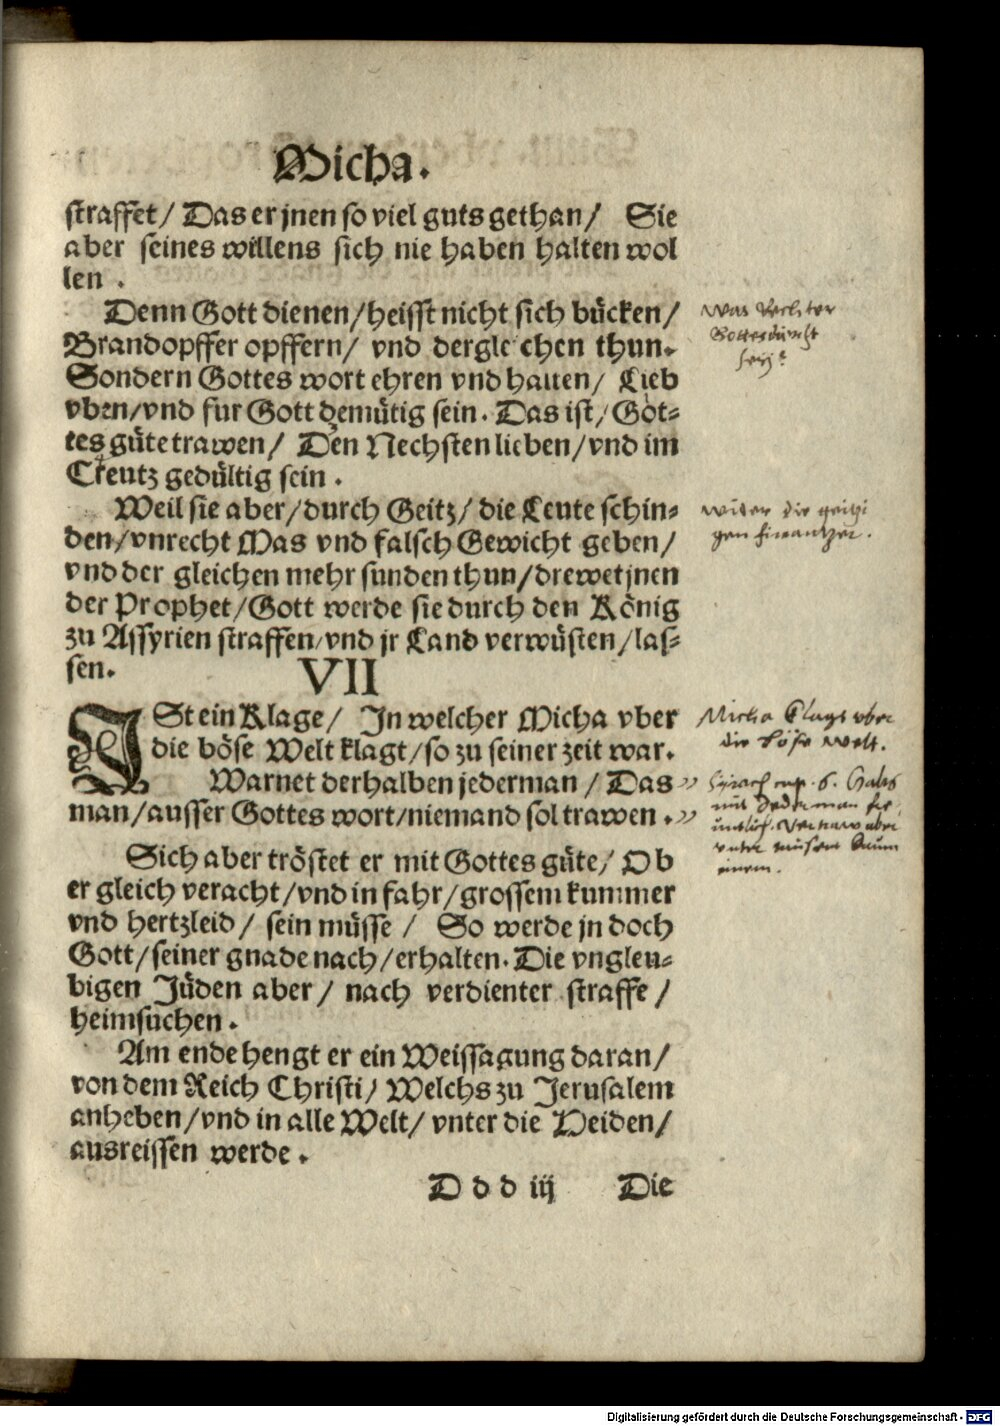 Micha.
straffet/ Das er jnen so viel guts gethan/ Sie
aber seines willens sich nie haben halten wol
len.
Denn Gott dienen/heisst nicht sich bücken/
Brandopffer opffern/ vnd dergleichen thun.
Sondern Gottes wort ehren vnd halten/ Lieb
vben/vnd fur Gott demütig sein. Das ist/ Got=
tes güte trawen/ Den Nechsten lieben/vnd im
Creutz gedültig sein.
Weil sie aber/durch Geitz/ die Leute schin=
den/vnrecht Mas vnd falsch Gewicht geben/
vnd der gleichen mehr sunden thun/drewet jnen
der Prophet/Gott werde sie durch den König
zu Assyrien straffen/vnd jr Land verwüsten/las=
sen.
VII
ISt ein Klage/ In welcher Micha vber
die böse Welt klagt/so zu seiner zeit war.
Warnet derhalben jederman/ Das
man/ausser Gottes wort/niemand sol trawen.
Sich aber tröstet er mit Gottes güte/ Ob
er gleich veracht/vnd in fahr/grossem kummer
vnd hertzleid/ sein müsse/ So werde jn doch
Gott/seiner gnade nach/erhalten. Die vngleu=
bigen Jüden aber/ nach verdienter straffe/
heimsuchen.
Am ende hengt er ein Weissagung daran/
von dem Reich Christi/ Welchs zu Jerusalem
anheben/vnd in alle Welt/ vnter die Heiden/
ausreissen werde.
D d d iij Die
Was rechter
Gottesdienst
sey?
Wider die geitzi
gen finantzer.
Micha klagt vber
die böse welt.
Syrach cap. 6. Halts
mit Jederman fre
untlich. Vertraw aber
vnter
einem.
Digitalisierung gefördert durch die Deutsche Forschungsgemeinschaft - DFG